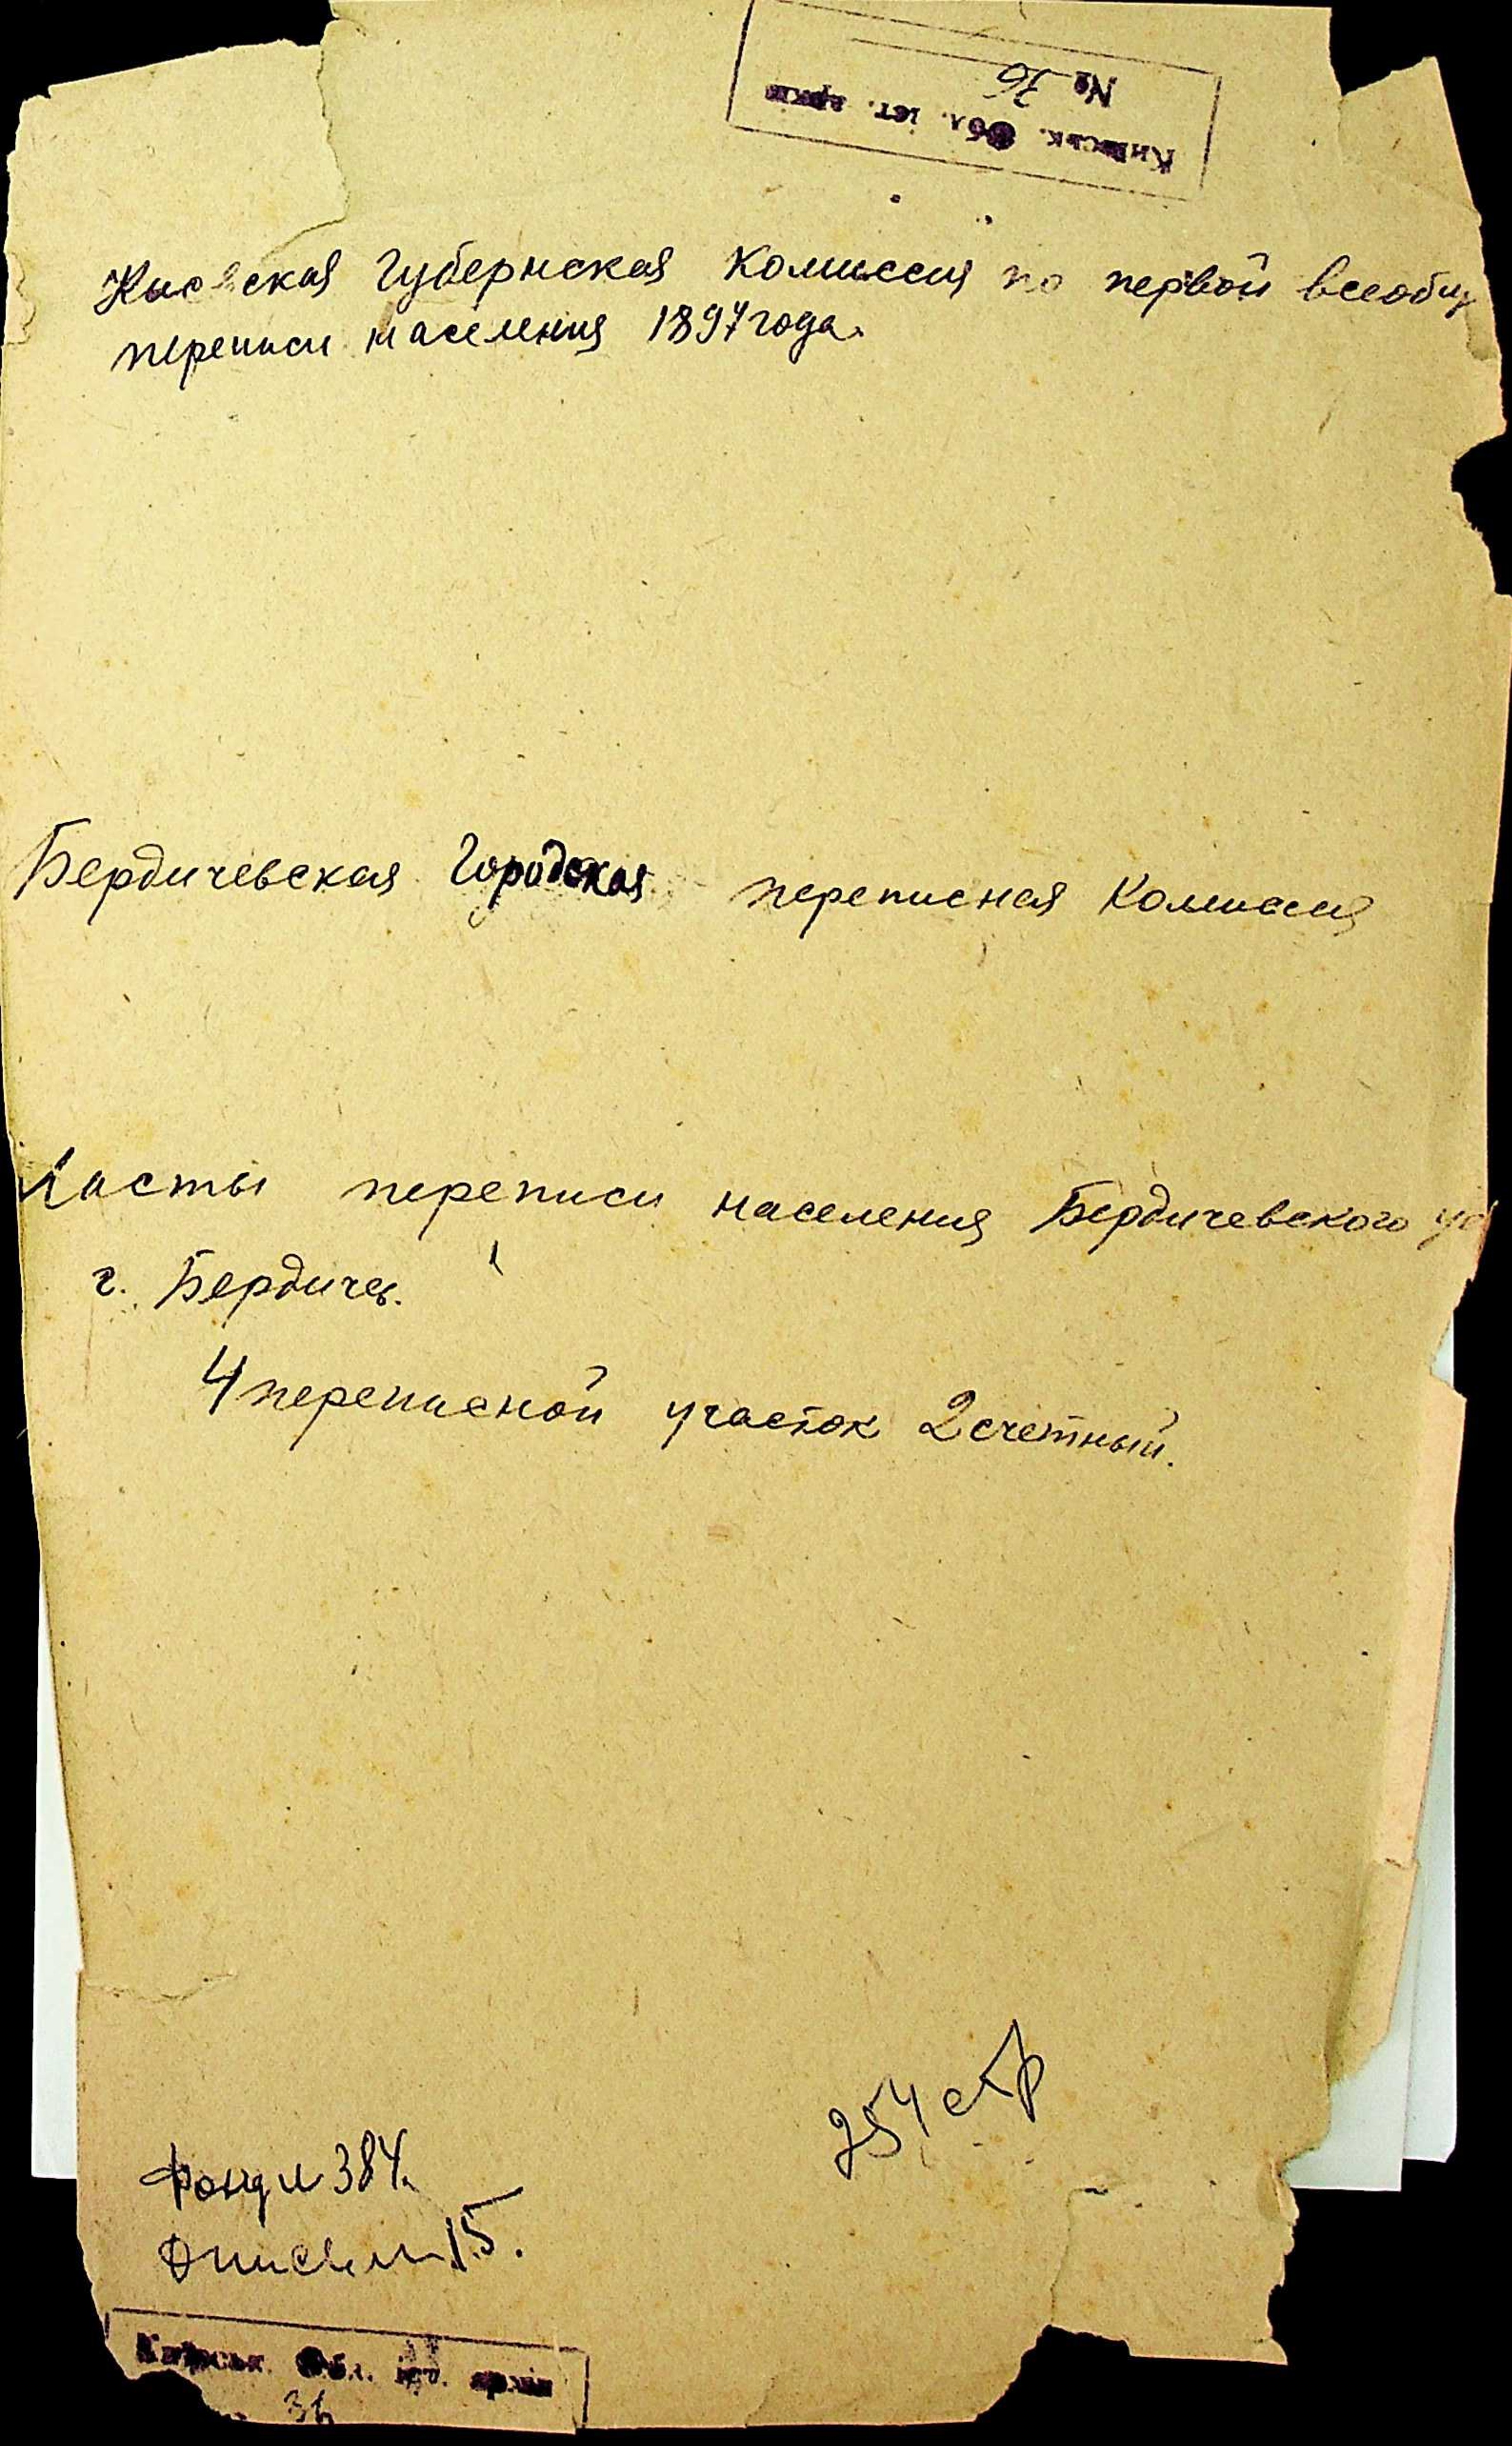 Київськ. Обл. іст. архів
№ 76
Киевская Губернская Комиссия по первой всеобщ
переписи населения 1897 года.
Бердичевская Городская переписная Комиссия
Листы переписи населения Бердичевского уе
г. Бердичев.
4 переписной участок 2 счетный.
254 стр
Фонд № 384.
Опись № 15.
Київськ. Обл. іст. архів